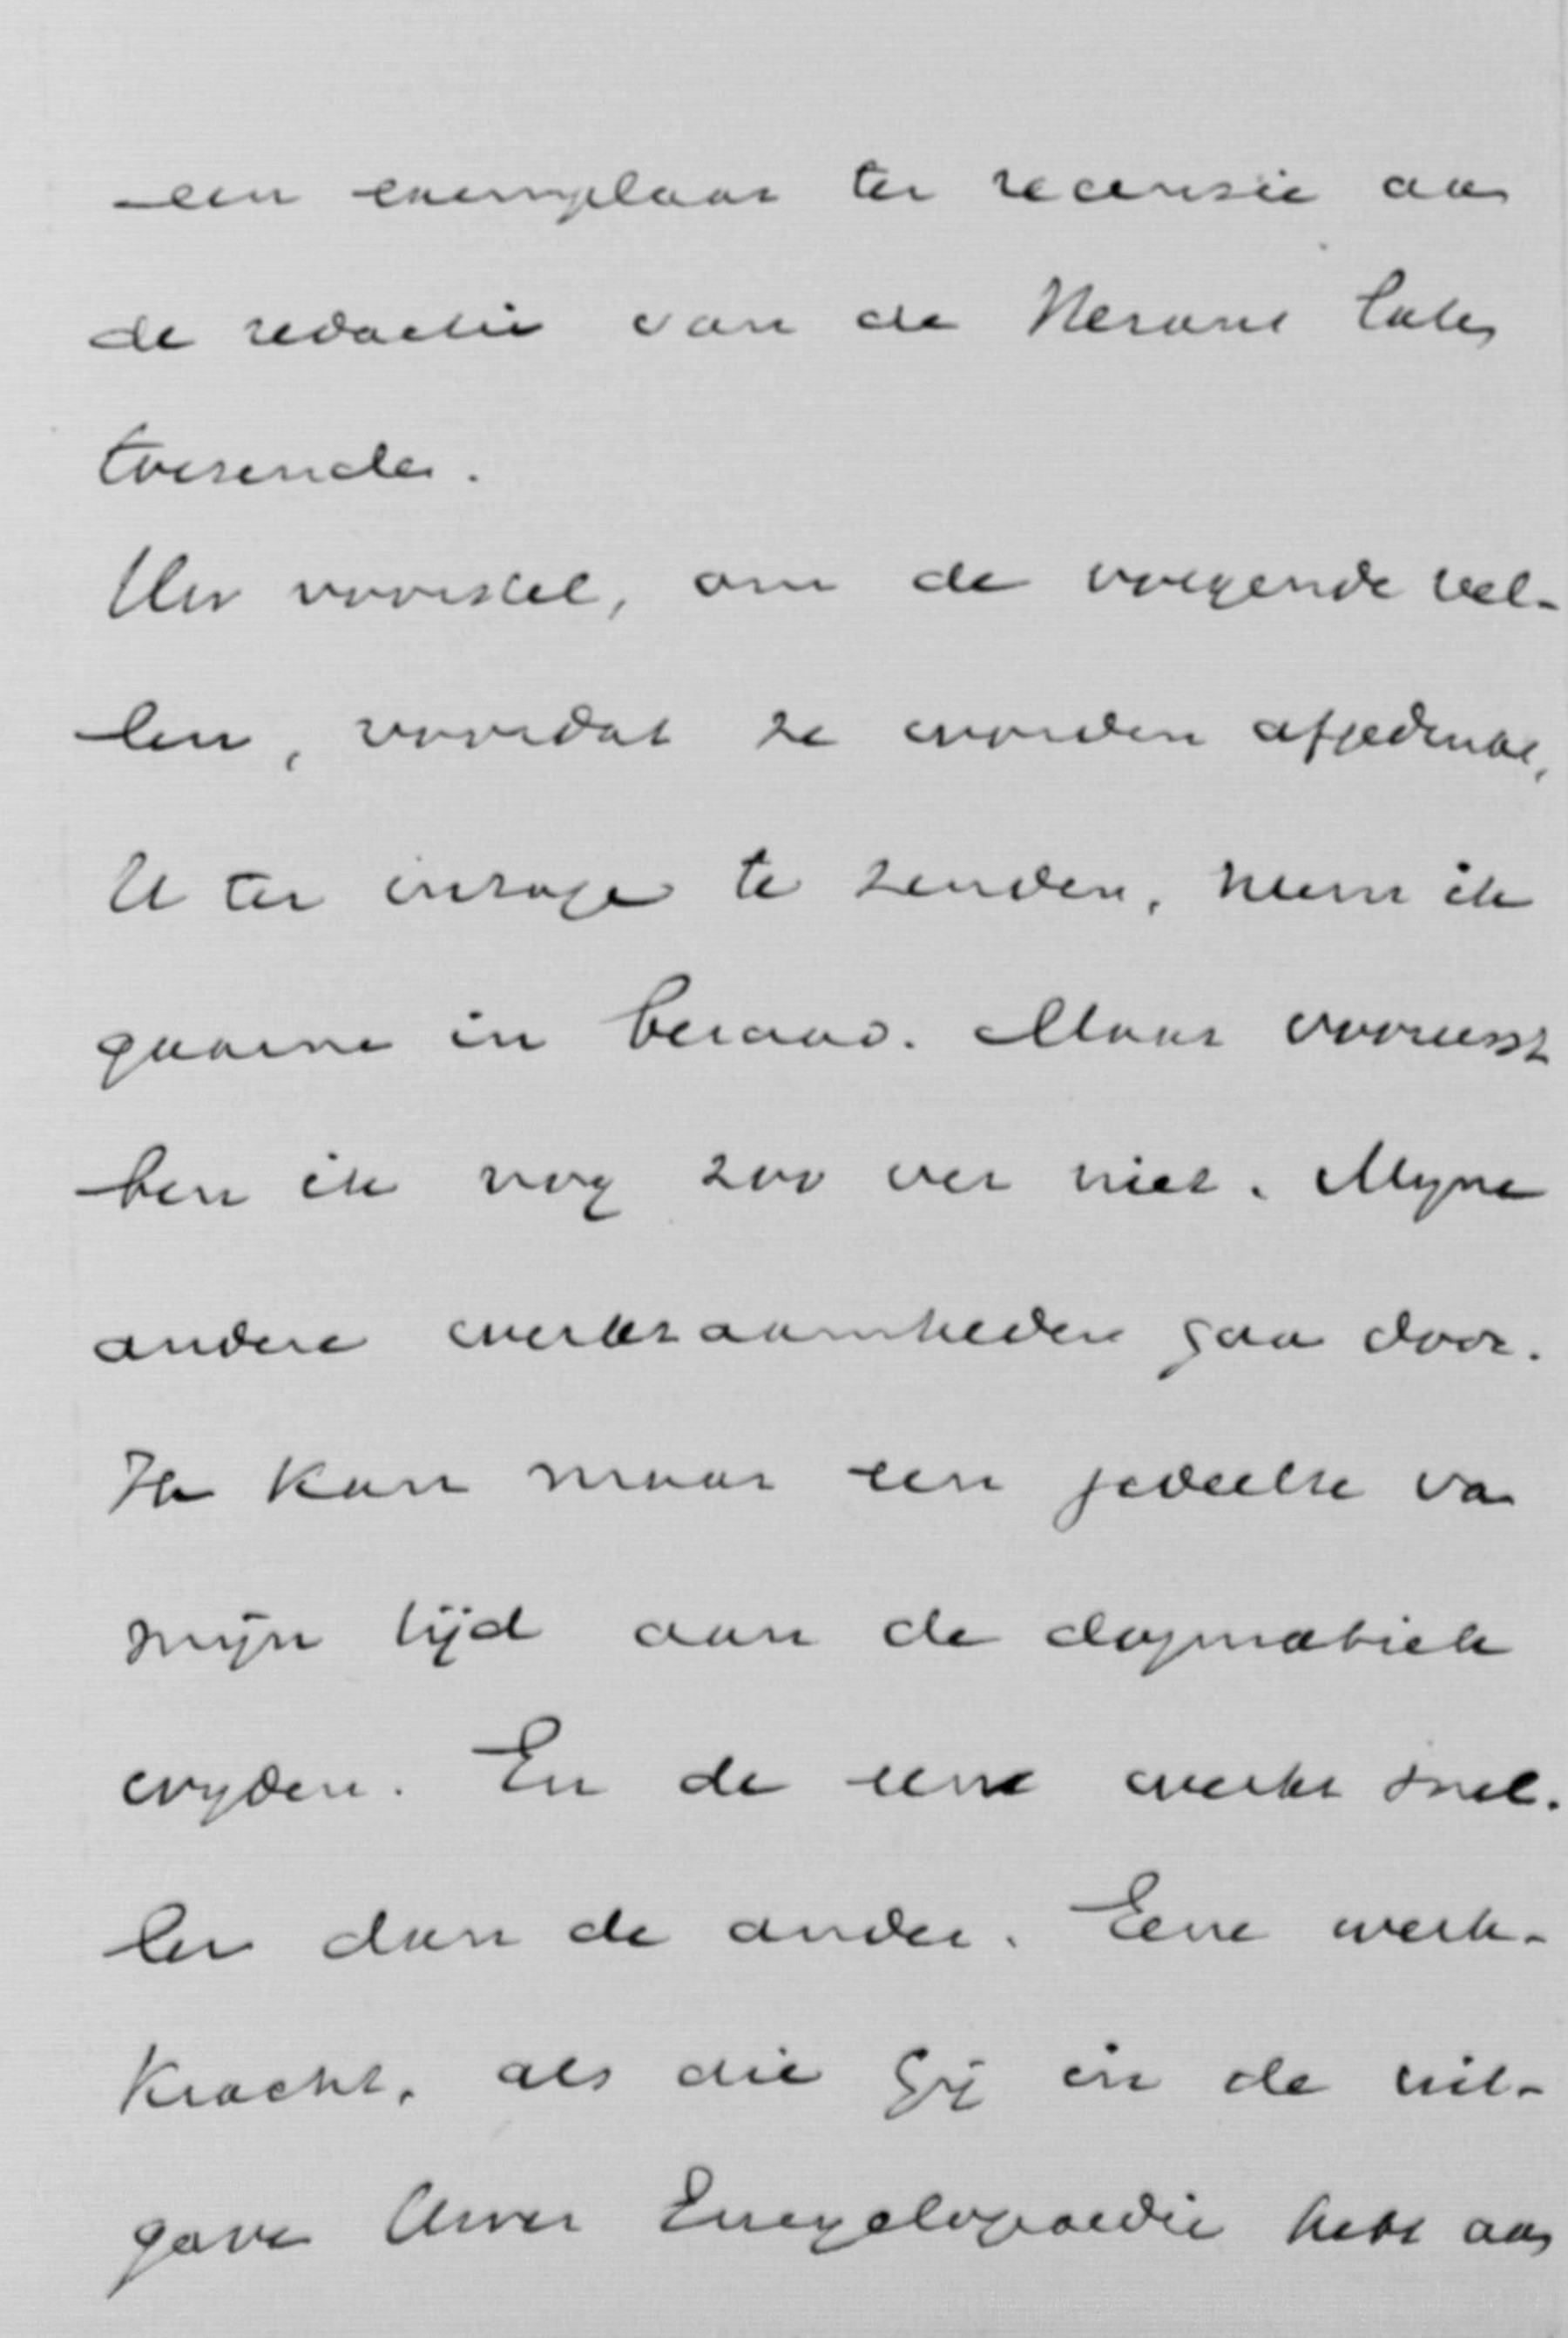 een exemplaar ter recensie aan
de redactie van de Heraut laten
toesenden.
Uw voorstel, om de volgende vel-
len, voordat ze worden afgedrukt,
U ter inzage te zenden, neem ik
gaarne in beraad. Maar vooreerst
ben ik nog zoo ver niet. Myne
andere werkzaamheden gaan door.
Ik kan maar een gedeelte van
mijn tijd aan de dogmatiek
wyden. En de eene werkt snel-
ler dan de ander. Eene werk-
kracht, als die Gij in de uit-
gave Uwer Encyclopaedie hebt aan